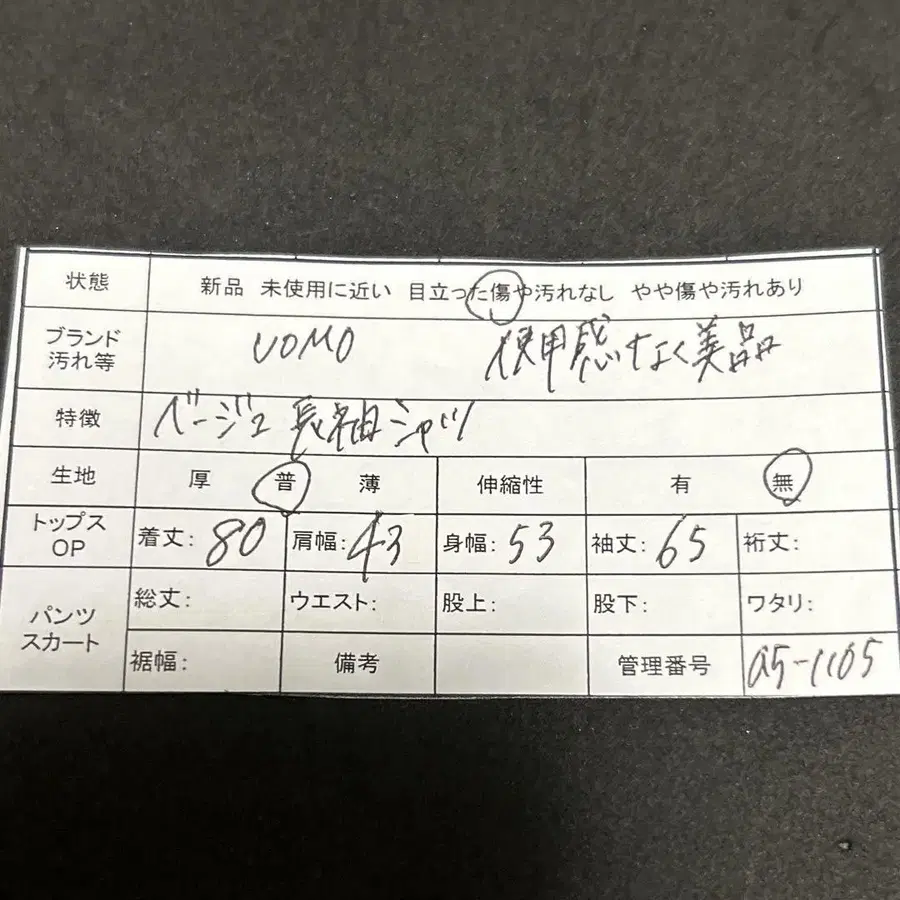 状態 新品 未使用に近い 目立った傷や汚れなし やや傷や汚れあり
ブランド
汚れ等 UOMO 使用感なく美品
特徴 ベージュ 長袖シャツ
生地 厚 普 薄 伸縮性 有 無
トップス
OP 着丈: 80 肩幅: 43 身幅: 53 袖丈: 65 裄丈:
パンツ
スカート 総丈: ウエスト: 股上: 股下: ワタリ:
裾幅: 備考 管理番号 a5-1105